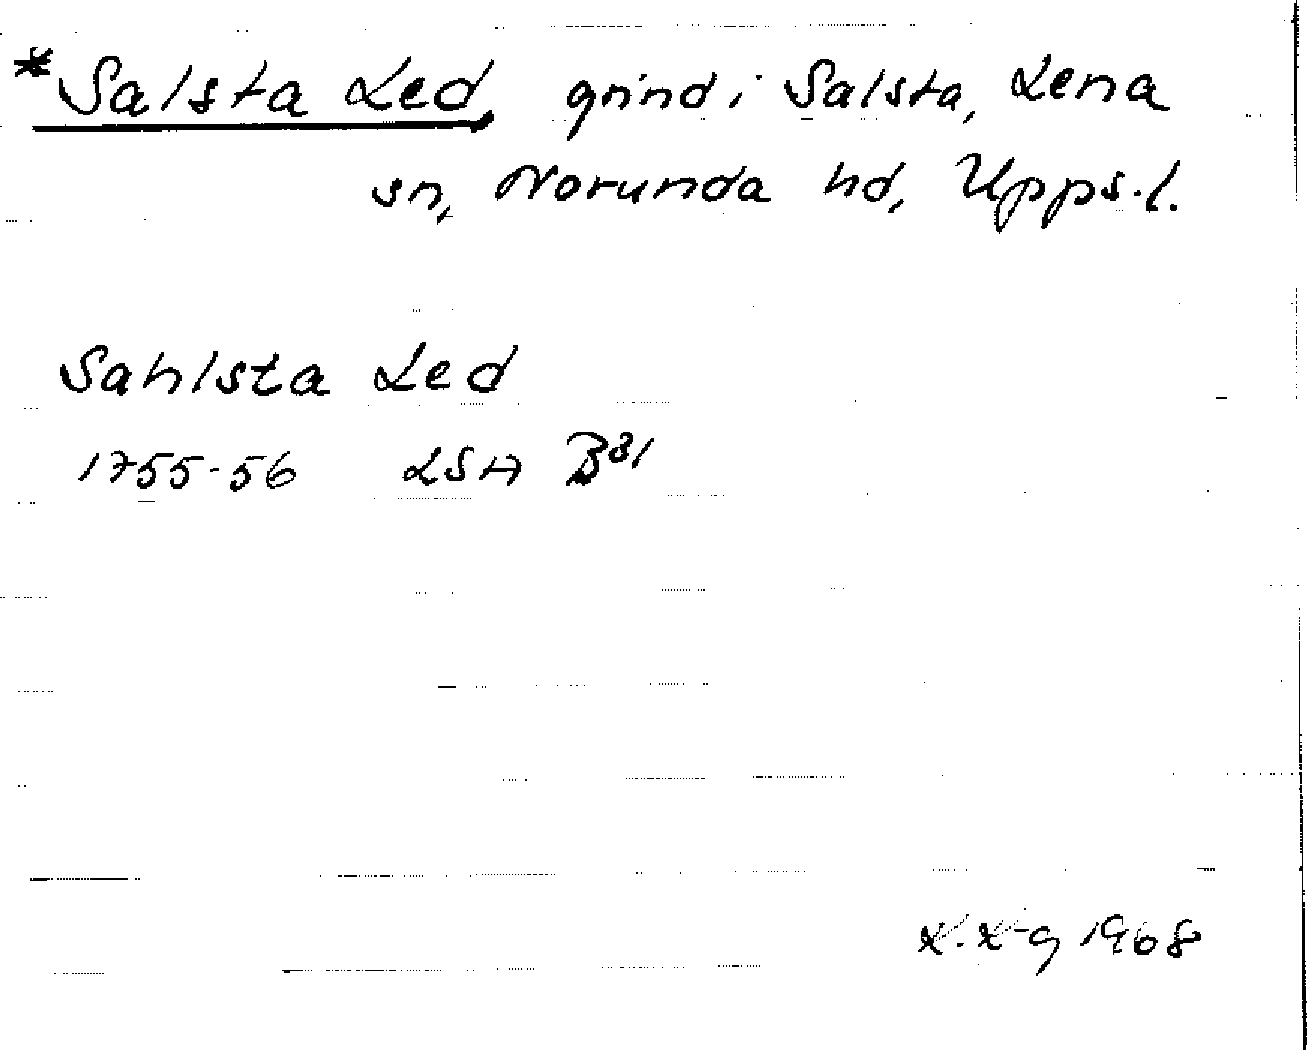 *Salsta Led, grind i Salsta, Lena
sn, Norunda hd, Upps.l.
Sahlsta Led
1755-56 LSA B31
K.K-g 1968